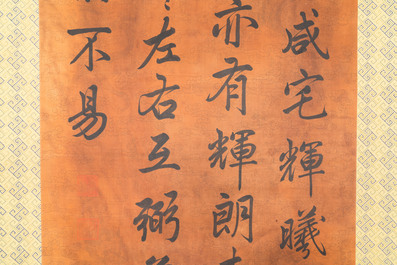 咸宅輝曦
亦有輝朗
左右互弼
不易